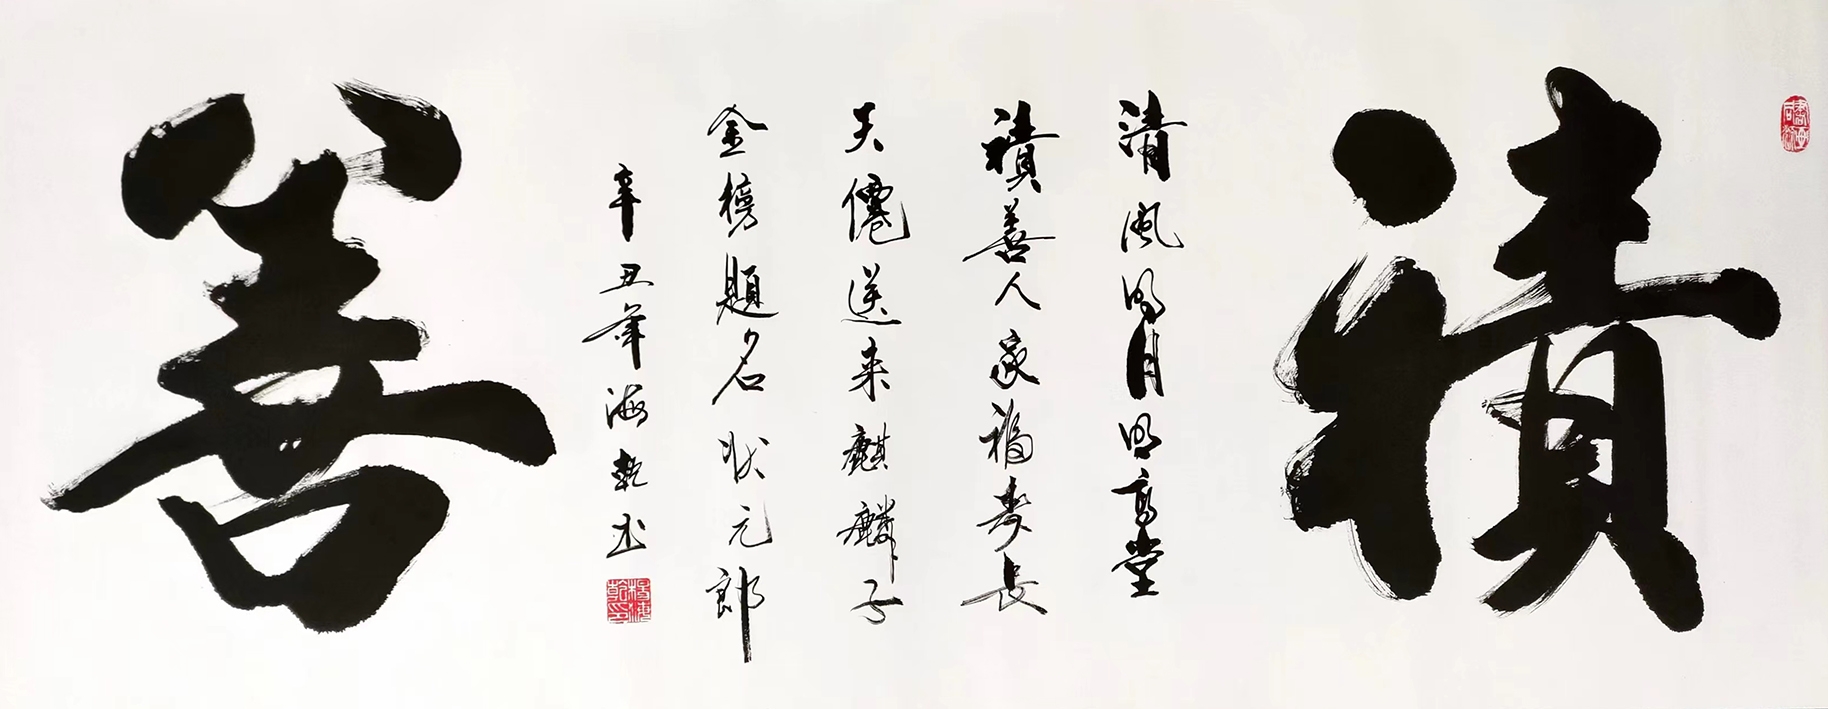 積
清風明月明高堂
積善人家福壽長
天僊送来麒麟子
金榜題名状元郎
辛丑年海乾书
楊海乾印
善